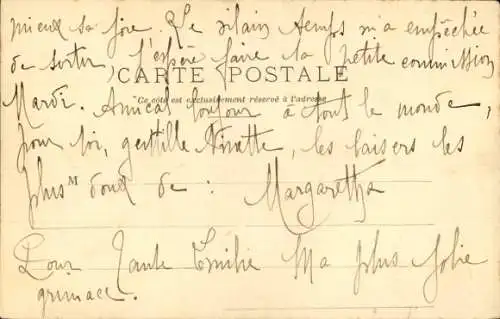 mieux sa foire. Le vilain temps m'a empêchée
de sortir, j'espère faire ta petite commission
CARTE POSTALE
Ce côté est exclusivement réservé à l'adresse
Mardi. Amical bonjour à tout le monde,
pour toi, gentille Ninette, les baisers les
plus doux de : Margaretha
M
Pour Tante Emilie Ma plus Jolie
grimace.